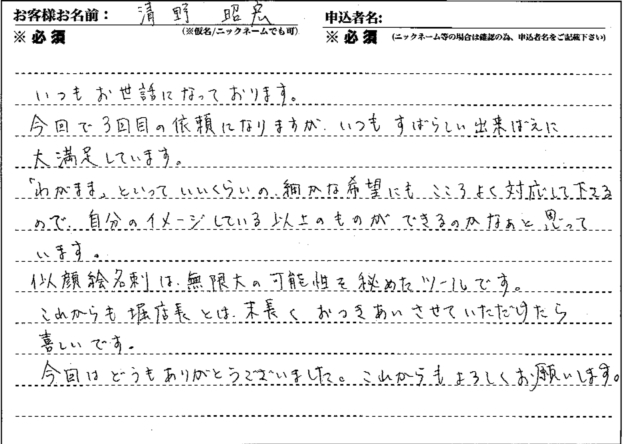 お客様お名前： 清野 昭宏 申込者名:
※必須 (※仮名/ニックネームでも可) ※必須 (ニックネーム等の場合は確認の為、申込者名をご記載下さい)
いつもお世話になっております。
今回で3回目の依頼になりますが、いつもすばらしい出来ばえに
大満足しています。
「わがまま」といっていいくらいの、細かな希望にもこころよく対応して下さる
ので、自分のイメージしている以上のものができるのかなぁと思って
います。
似顔絵名刺は、無限大の可能性を秘めたツールです。
これからも堀店長とは、末長くおつきあいさせていただけたら
喜しいです。
今回はどうもありがとうございました。これからもよろしくお願いします。